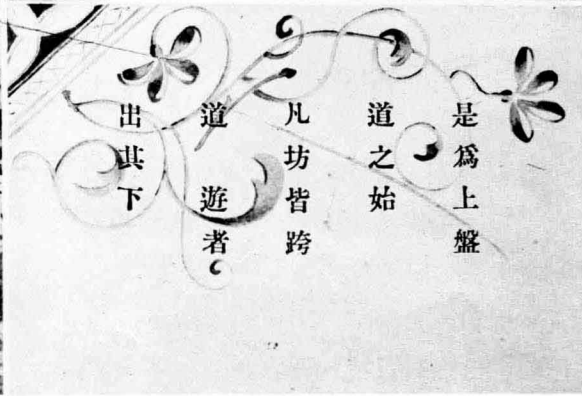 是爲上盤
道之始
凡坊皆跨
道　遊者
出其下